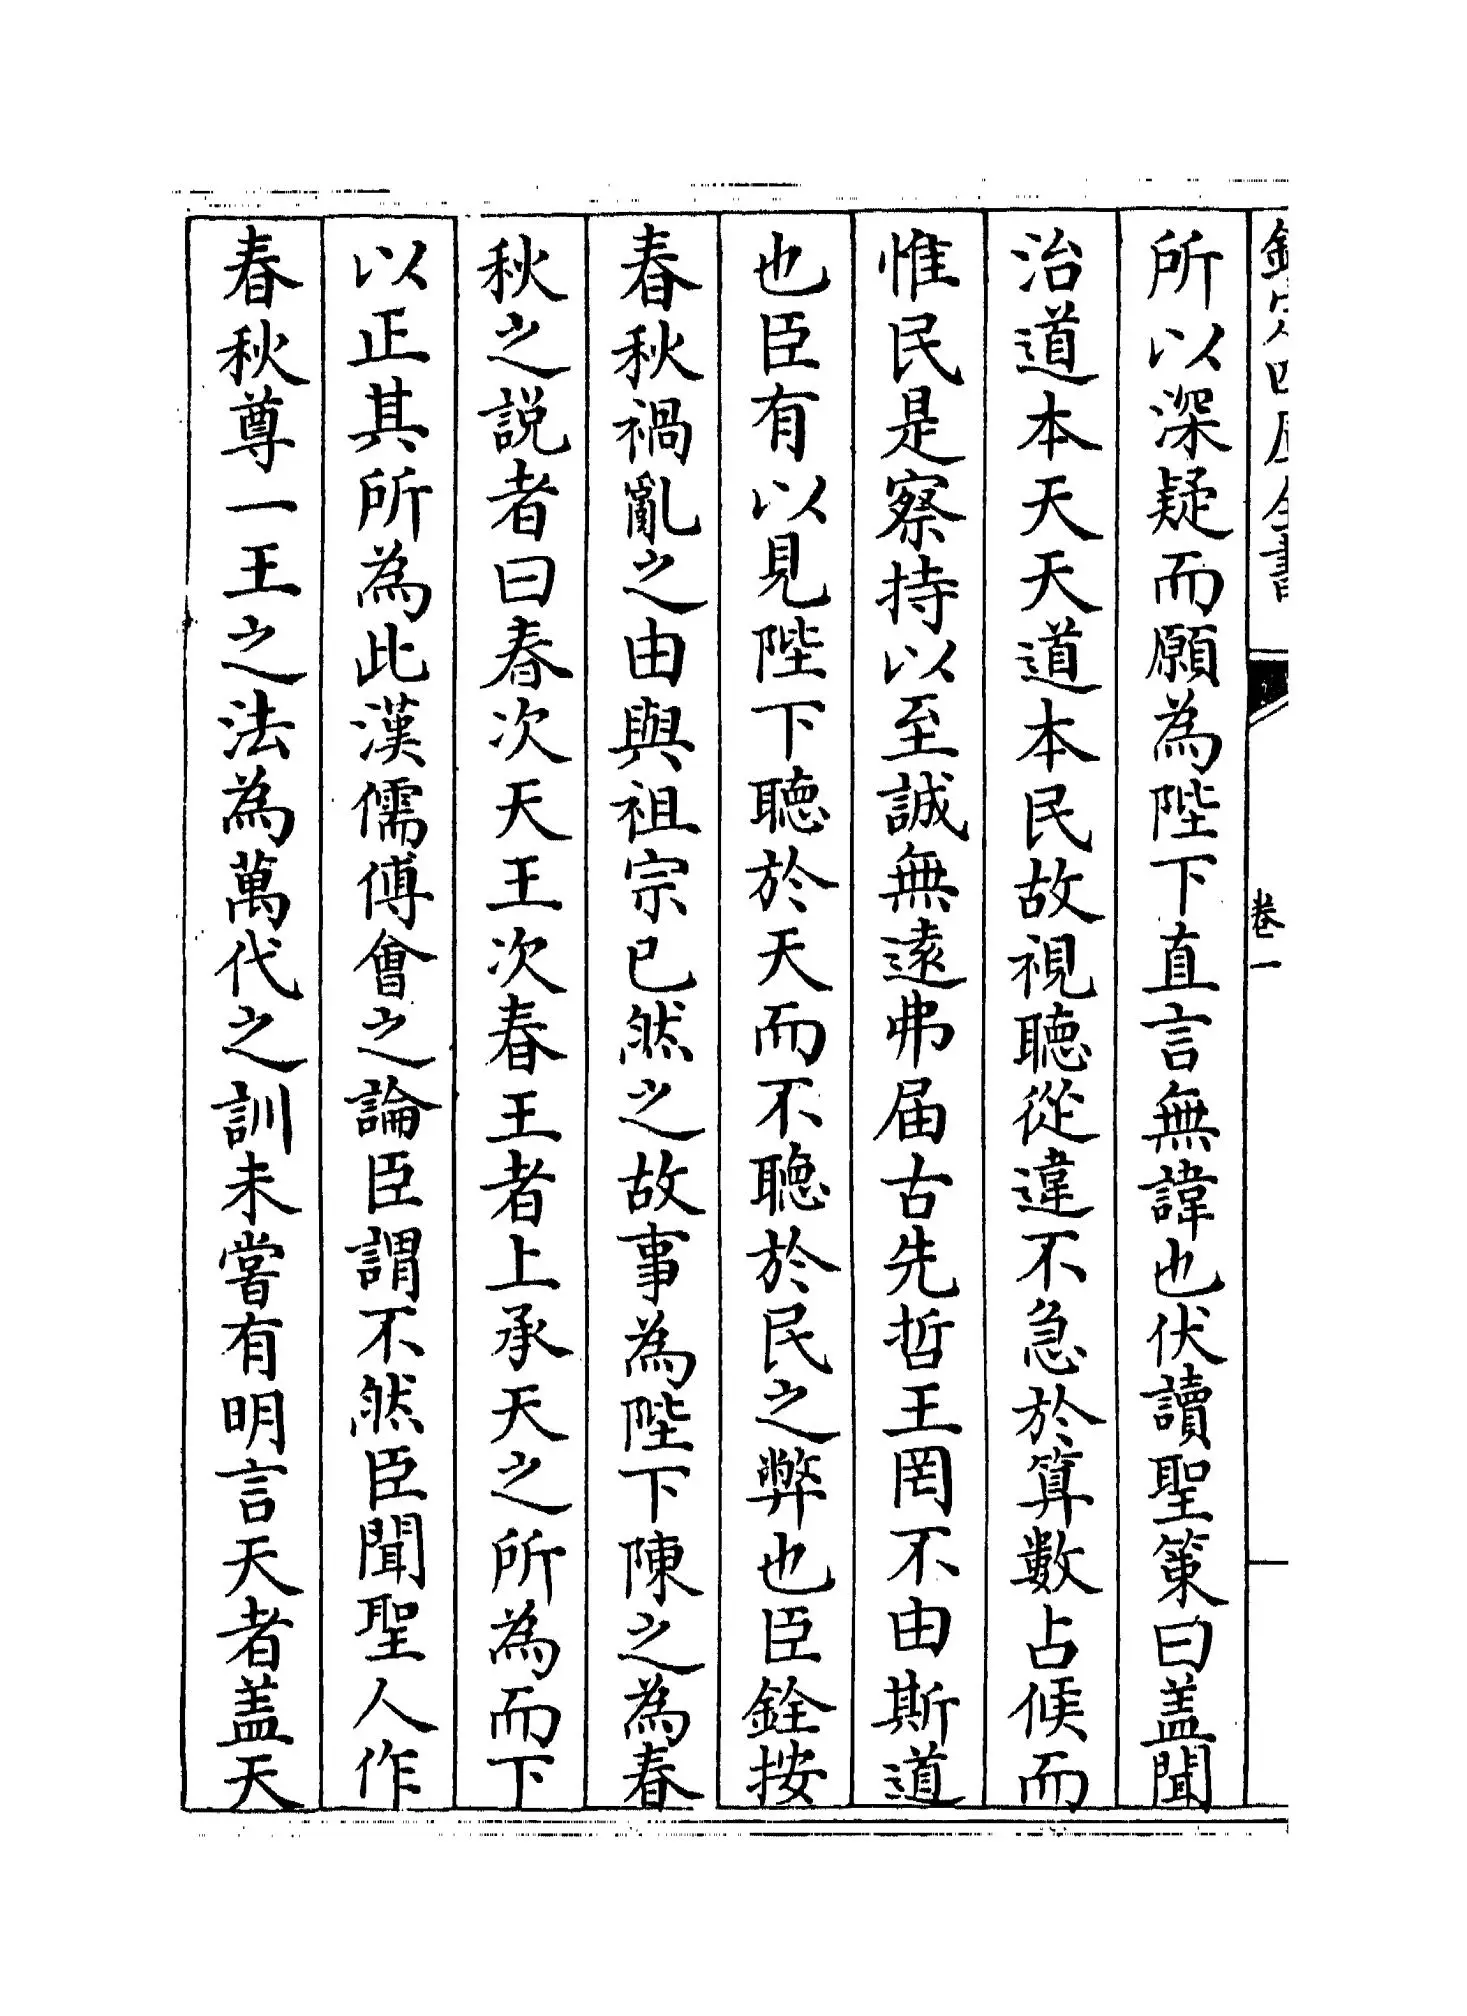 欽定四庫全書
卷一
所以深疑而願為陛下直言無諱也伏讀聖策曰盖聞
治道本天天道本民故視聽從違不急於算數占候而
惟民是察持以至誠無遠弗届古先哲王罔不由斯道
也臣有以見陛下聽於天而不聽於民之弊也臣銓按
春秋禍亂之由與祖宗已然之故事為陛下陳之為春
秋之説者曰春次天王次春王者上承天之所為而下
以正其所為此漢儒傅會之論臣謂不然臣聞聖人作
春秋尊一王之法為萬代之訓未嘗有明言天者盖天